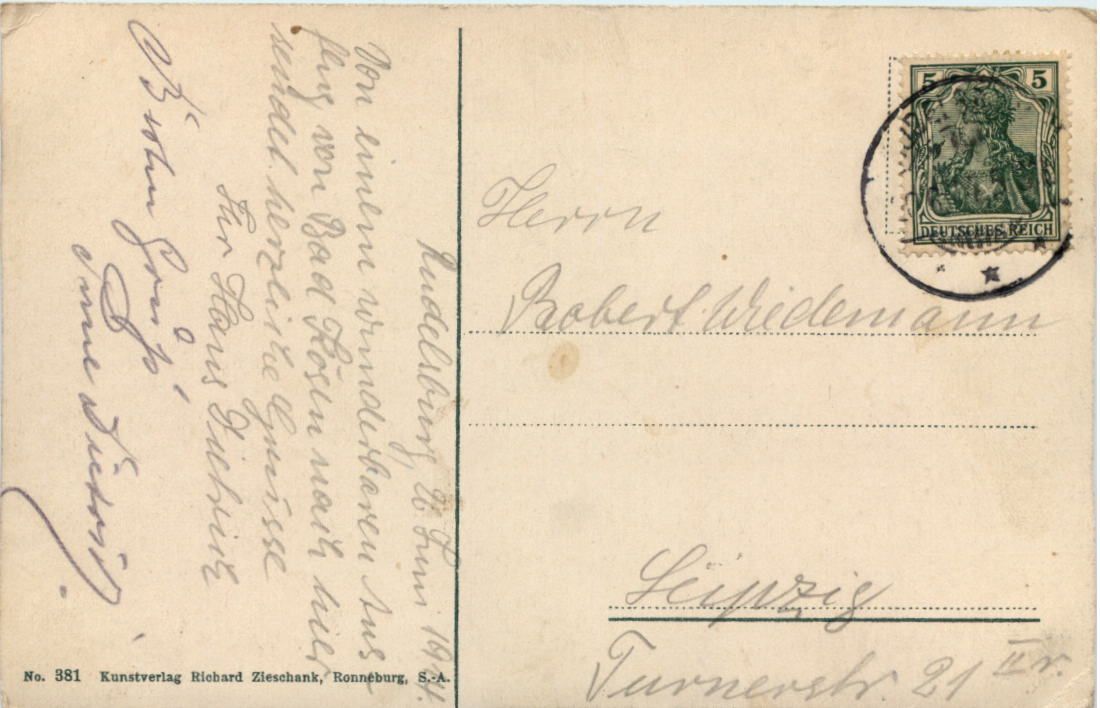 Rudelsburg, 26. Juni 1911.
Von einem wunderbaren Aus=
flug von Bad Kösen nach hier
sendet herzliche Grüsse
Ihr Hans Dietrich
Besten Gruß
Anne Dietrich.
5 5
DEUTSCHES REICH
Herrn
Robert Wiedemann
Leipzig
Turnerstr. 21 II r.
No. 381 Kunstverlag Richard Zieschank, Ronneburg, S.-A.